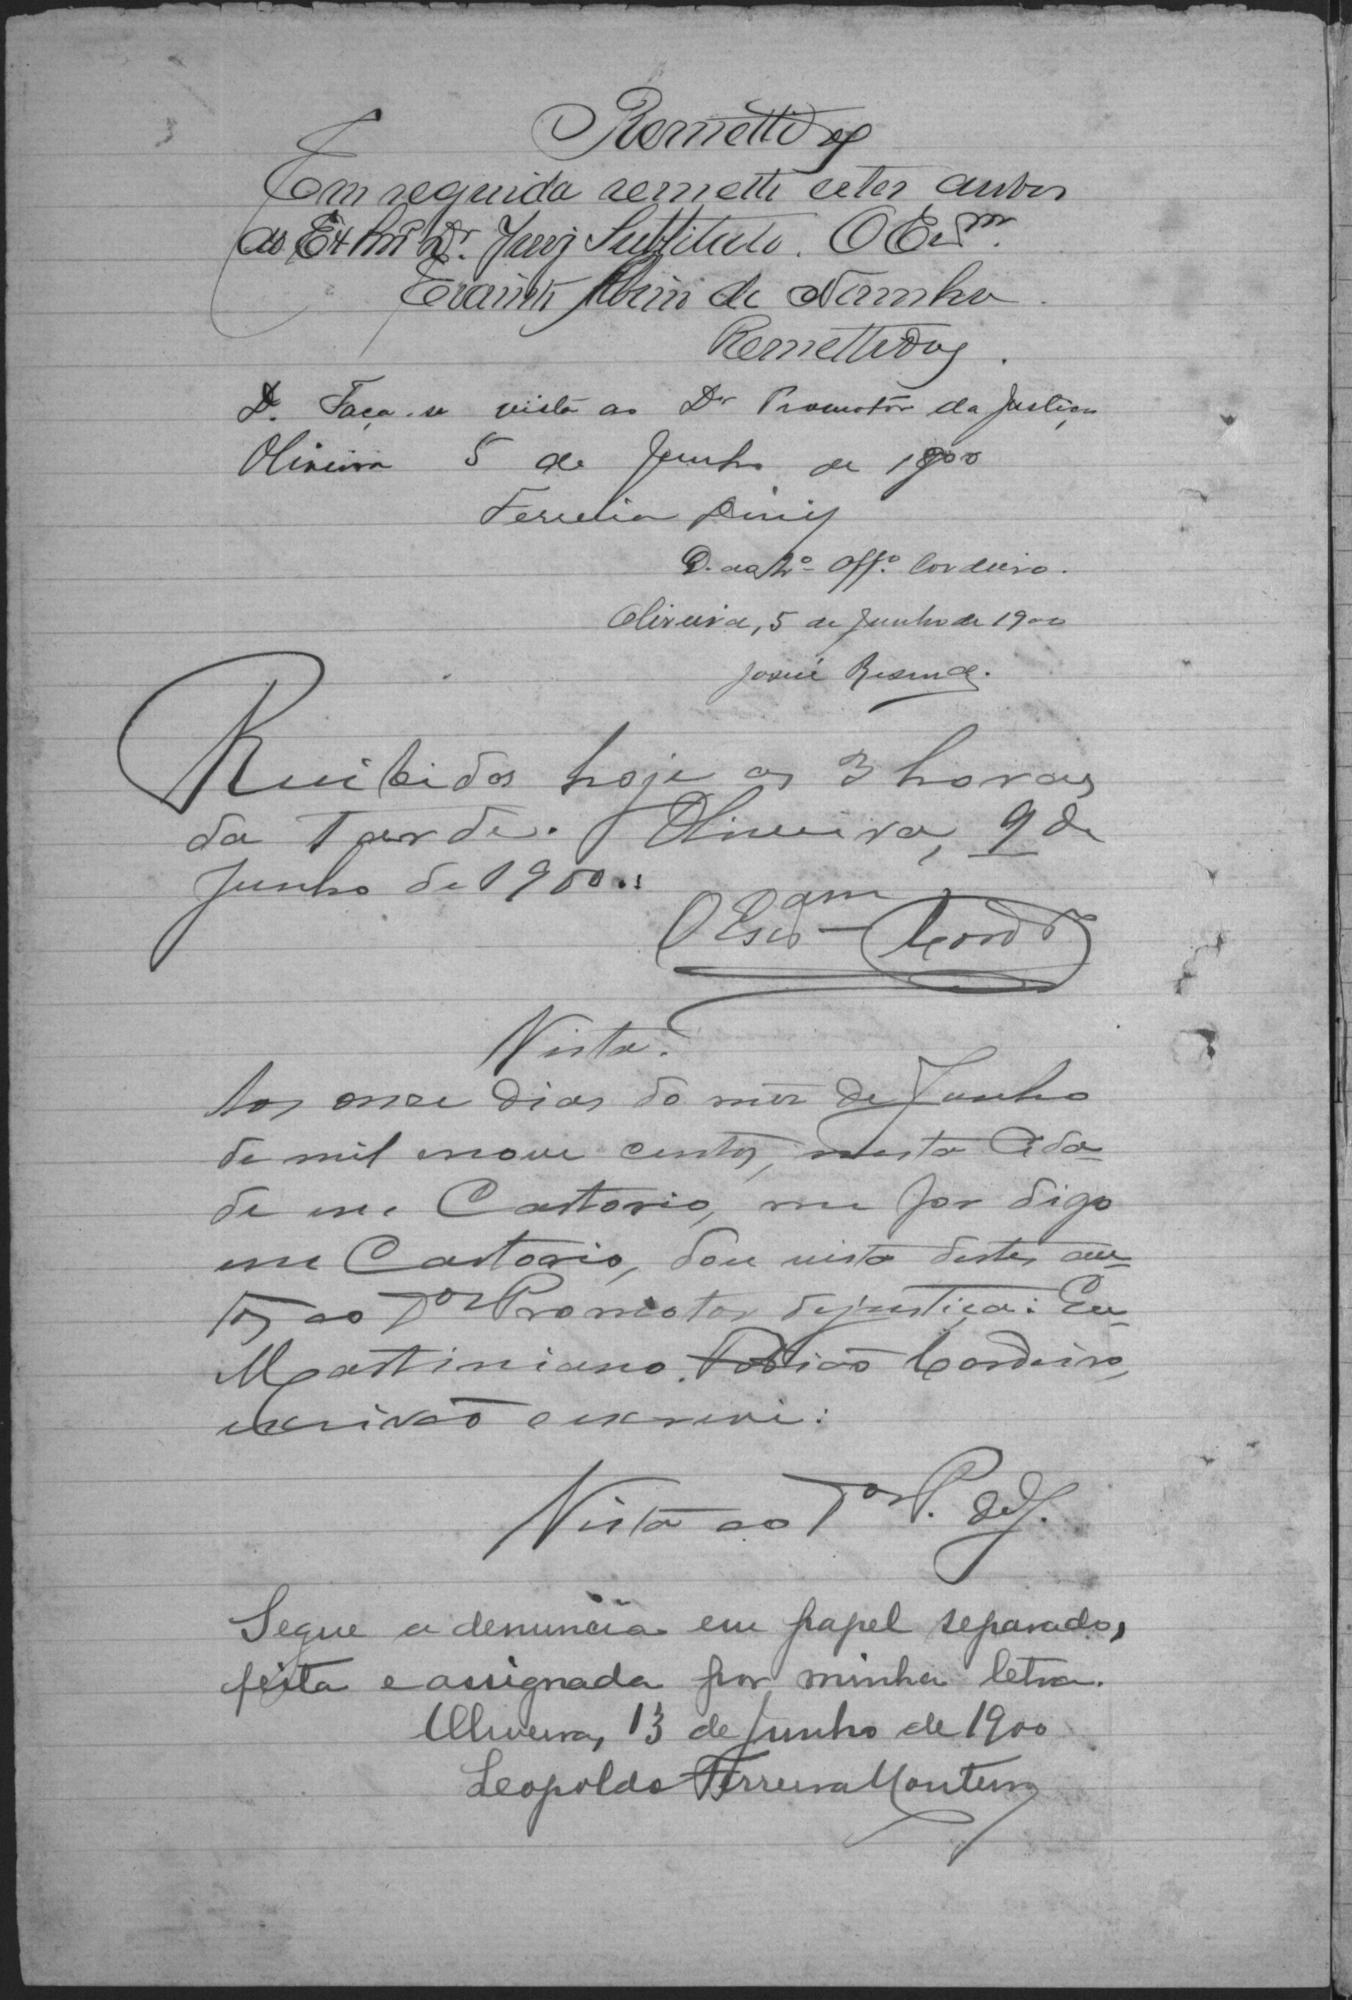 Remettidos
Em seguida remetti estes autos
ao Exmº Dr. Juiz Substituto. O Escm.
de
Remettidos.
D. Faça-se vista ao Dr Promotor da Justiça
Oliveira 5 de Junho de 1900
Ferreira Diniz
D. ao 2º Offº Cordeiro.
Oliveira, 5 de Junho de 1900
Josué Resende.
Recibidos hoje as 3 horas
da tarde. Oliveira, 9 de
Junho de 1900.
O Escam Cordº
Vista.
Aos onze dias do mez de Junho
de mil enove centos, nesta Cida-
de em Cartorio, me for digo
em Cartorio, dou vista destes au-
tos ao Dor Promotor dejustiça: Eu
Martiniano Tobias Cordeiro,
escrivão o escrevi:
Vista ao Dor P. de J.
Segue a denuncia em papel separado,
feita e assignada por minha letra.
Oliveira, 13 de Junho de 1900
Leopoldo Ferreira Monteiro